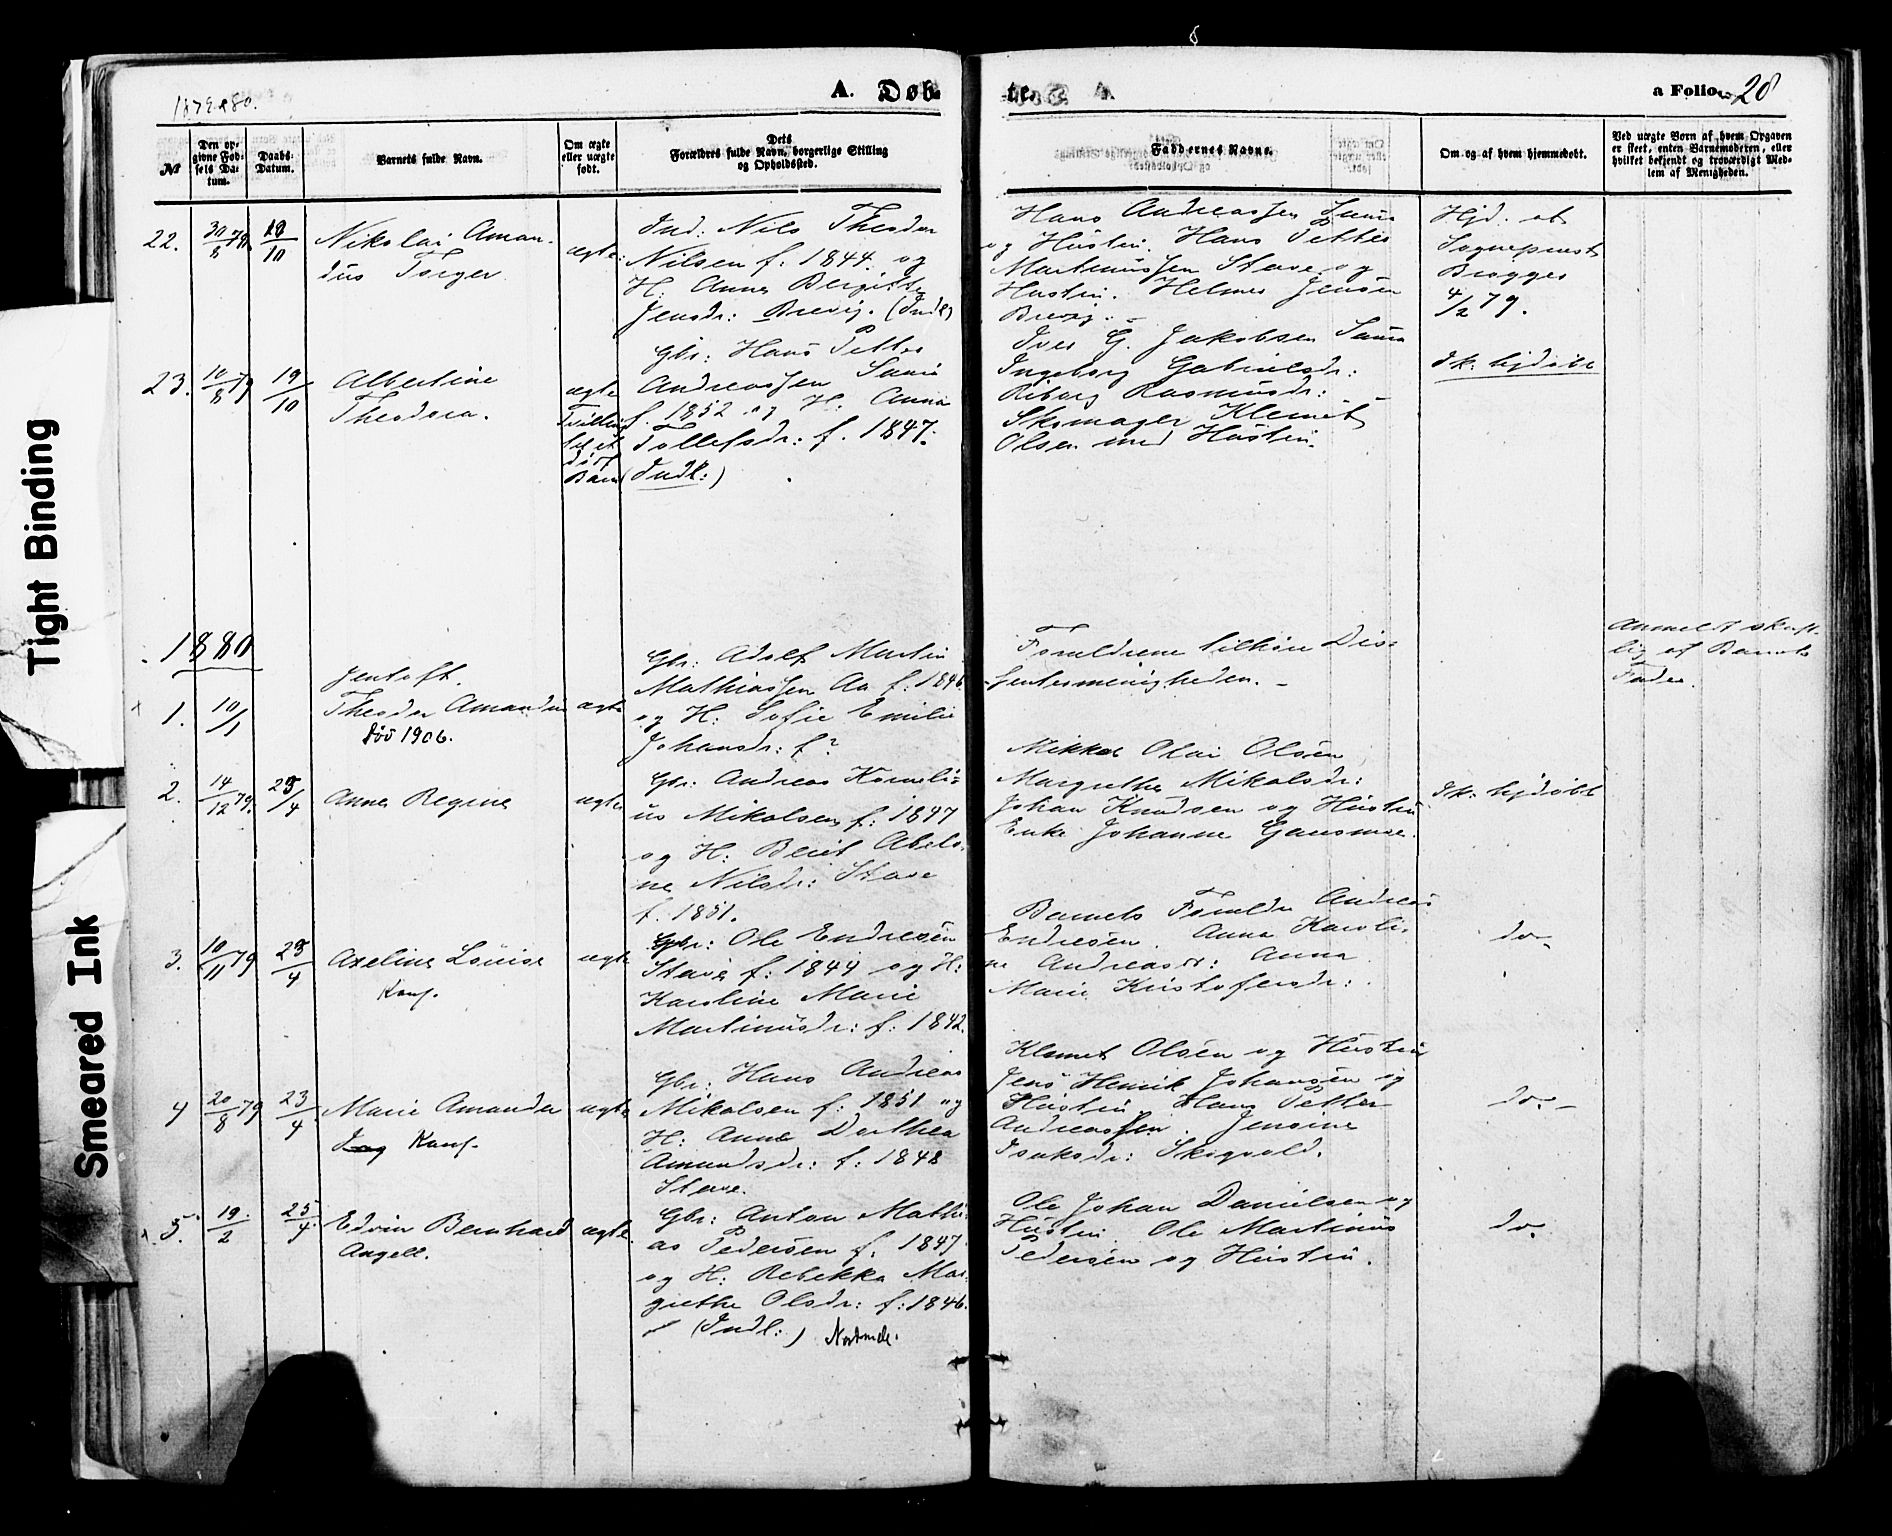 1879-80.
A. Døb-
te.
a Folio 28
№
Den op-
givne Fød-
sels Da-
tum.
Daabs-
Datum.
Barnets fulde Navn.
Om ægte
eller uægte
født.
Dets
Forældres fulde Navn, borgerlige Stilling
og Opholdssted.
Faddernes Navne.
Om og af hvem hjemmedøbt.
Ved uægte Børn af hvem Opgaven
er skeet, enten Barnemoderen, eller
hvilket bekjendt og troværdigt Med-
lem af Menigheden.
22.
30/8 79
19/10
Nikolai Aman-
dus Torger
ægte
Ind: Nils Theodor
Nilsen f. 1844. og
H: Anne Bergitte
Jensdr: Brevig. (Indl)
Hans Andreassen Saura
og Hustru. Hans Petter
Martinussen Stave og
Hustru. Helmer Jensen
Brevig.
Hjd. at
Sogneprest
Brøgger
4/2 79.
23.
10/8 79
19/10
Albertine
Theodora.
ægte
Tvilling
død
Barn
Gbr: Hans Petter
Andreassen Saura
f. 1852 og H: Anna
Tollefsdr: f. 1847.
(Indl:)
Iver G. Jakobsen Saura
Ingeborg Gabrielsdr:
Riborg Rasmusdr:
Skomager Klemet
Olsen med Hustru.
Ik: hjdøbt
1880
1.
10/1
Jentoft.
Theodor Amandus
død 1906.
ægte
Gbr: Adolf Martin
Mathiassen Aa f. 1846
og H: Sofie Emilie
Johansdr: f?
Forældrene tilhøre Dis-
sentermenigheden.
Anmeldt skrift-
lig af Barnets
Fader.
2.
14/12 79.
25/4
Anne Regine
ægte
Gbr: Andreas Korneli-
us Mikalsen f: 1847
og H: Berit Abelo-
ne Nilsdr: Stave
f. 1851.
Mikkel Olai Olsen
Margrethe Mikalsdr:
Johan Knudsen og Hustru
Enke Johanne
Ik: hjdøbt
3.
10/11 79
25/4
Axeline Louise
Konf.
ægte
Gbr: Ole Endresen
Stave f: 1844 og H:
Karoline Marie
Martinusdr: f: 1842.
Barnets Forældre Andreas
Endresen. Anna Karoli-
ne Andreasdr: Anna
Marie Kristofersdr:
do-
4
20/8 79
23/4
Marie Amanda
Konf.
ægte
Gbr: Hans Andreas
Mikalsen f: 1851 og
H: Anne Dorthea
Amundsdr: f: 1848
Stave.
Klemet Olsen og Hustru
Jens Henrik Johansen og
Hustru. Hans Petter
Andreassen. Jensine
Isaksdr: Skogvold.
do-
5.
19/2
25/4
Edvin Bernhard
Angell.
ægte
Gbr: Anton Mathi-
as Pedersen f. 1847
og H: Rebekka Mar-
grethe Olsdr: f: 1846.
(Indl:) Nordmele.
Ole Johan Danielsen og
Hustru. Ole Martinus
Pedersen og Hustru.
do
Tight Binding
Smeared Ink